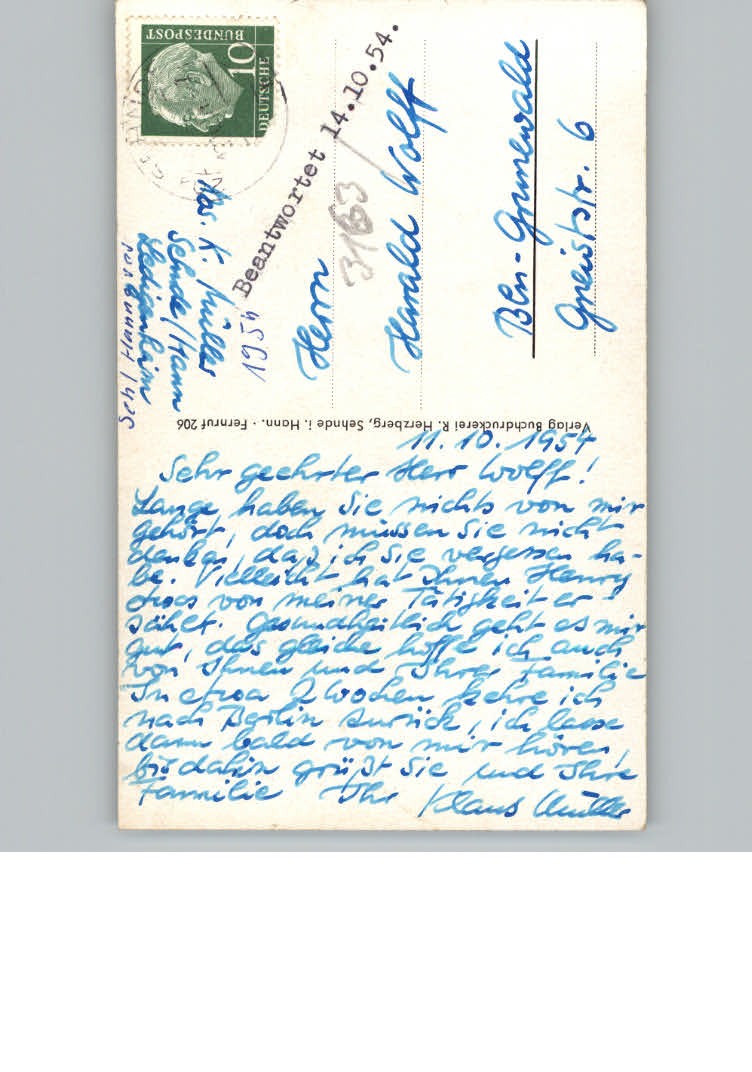 DEUTSCHE
BUNDESPOST
10
Beantwortet 14.10.54.
3163
Abs. K. Müller
Sehnde/Hann
Ledigenheim
1954
Herrn
Harald Wolff
Bln-Grunewald
Verlag Buchdruckerei R. Herzberg, Sehnde i. Hann. · Fernruf 206
11.10.1954
Sehr geehrter Herr Wolff!
Lange haben Sie nichts von mir
gehört, doch müssen Sie nicht
denken, daß ich Sie vergessen ha-
be. Vielleicht hat Ihnen Henry
etwas von meiner Tätigkeit er-
zählt. Gesundheitlich geht es mir
gut, das gleiche hoffe ich auch
von Ihnen und Ihrer Familie
In etwa 2 Wochen kehre ich
nach Berlin zurück, ich lasse
dann bald von mir hören,
bis dahin grüßt Sie und Ihre
Familie Ihr Klaus Müller